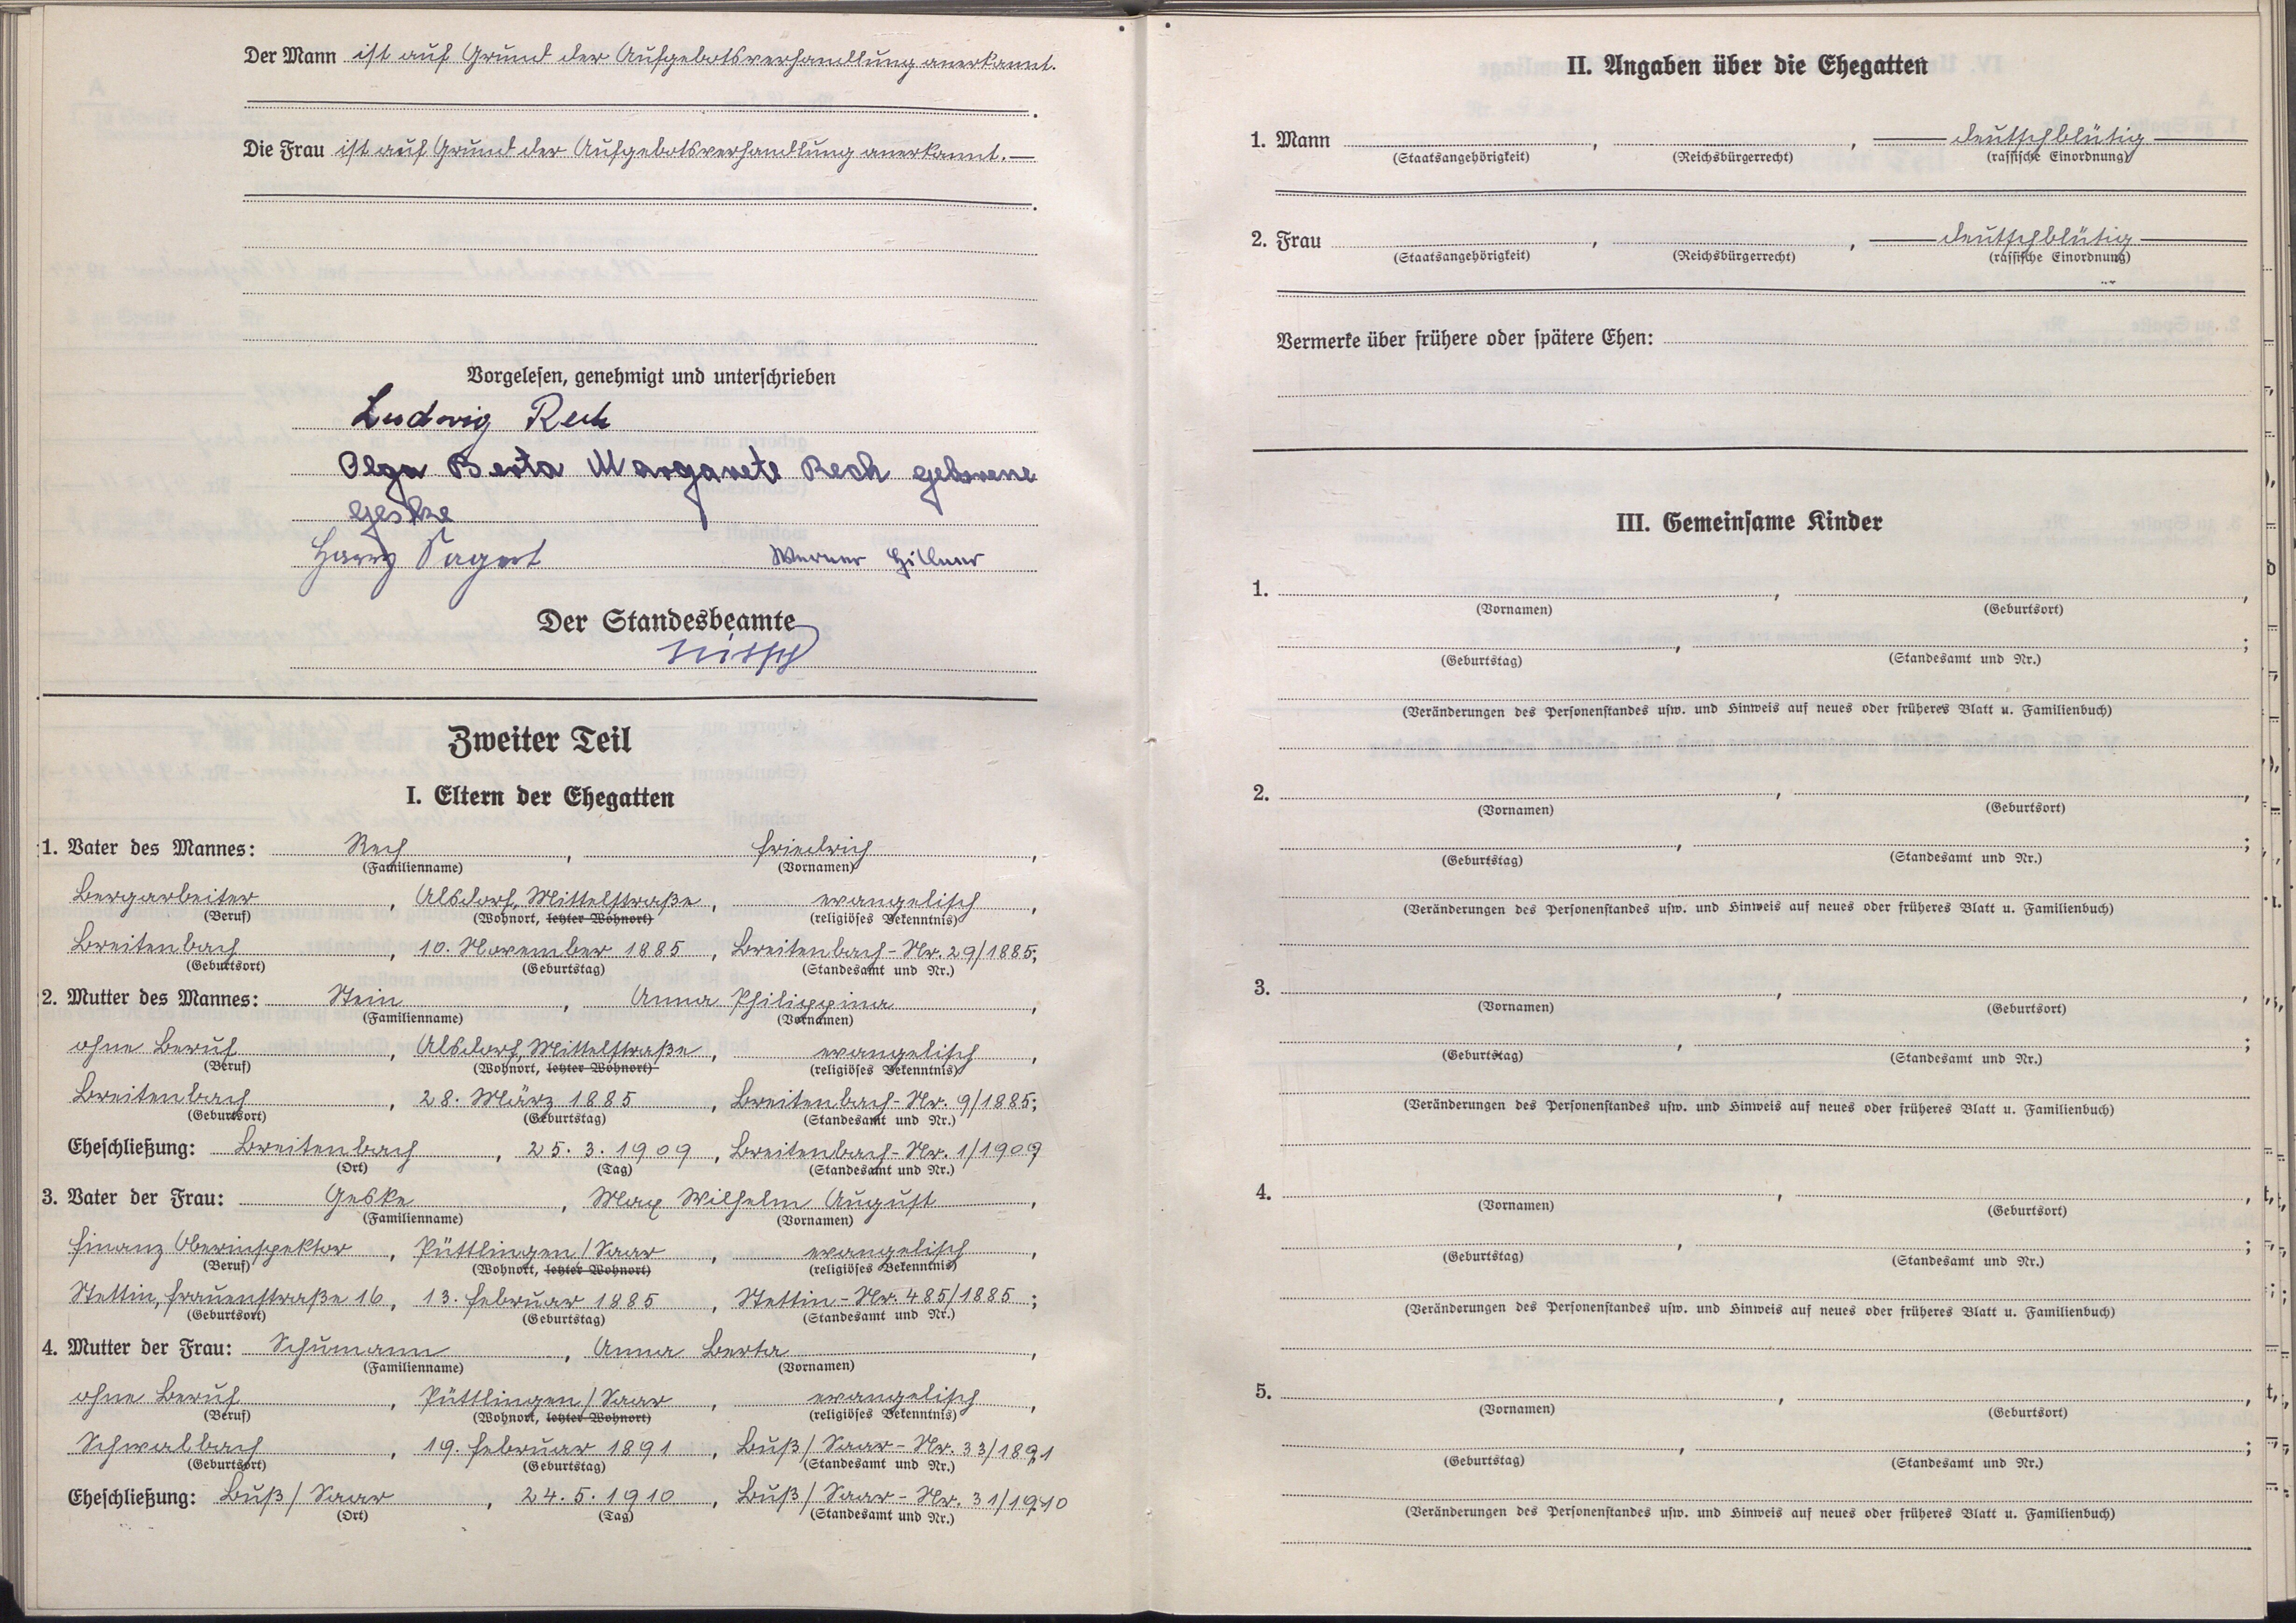 Der Mann ist auf Grund der Aufgebotsverhandlung anerkannt.
Die Frau ist auf Grund der Aufgebotsverhandlung anerkannt. —
Vorgelesen, genehmigt und unterschrieben
Ludwig Rech
Olga Berta Margarete Rech geborene
Geske
Harry Sagert Werner Hillner
Der Standesbeamte
Zweiter Teil
I. Eltern der Ehegatten
1. Vater des Mannes: Rech, Friedrich,
(Familienname) (Vornamen)
Bergarbeiter, Alsdorf, Mittelstraße, evangelisch,
(Beruf) (Wohnort, letzter Wohnort) (religiöses Bekenntnis)
Breitenbach, 10. November 1885, Breitenbach - Nr. 29/1885;
(Geburtsort) (Geburtstag) (Standesamt und Nr.)
2. Mutter des Mannes: Stein, Anna Philippina,
(Familienname) (Vornamen)
ohne Beruf, Alsdorf, Mittelstraße, evangelisch,
(Beruf) (Wohnort, letzter Wohnort) (religiöses Bekenntnis)
Breitenbach, 28. März 1885, Breitenbach - Nr. 9/1885;
(Geburtsort) (Geburtstag) (Standesamt und Nr.)
Eheschließung: Breitenbach, 25. 3. 1909, Breitenbach - Nr. 1/1909;
(Ort) (Tag) (Standesamt und Nr.)
3. Vater der Frau: Geske, Max Wilhelm August,
(Familienname) (Vornamen)
Finanz Oberinspektor, Püttlingen/Saar, evangelisch,
(Beruf) (Wohnort, letzter Wohnort) (religiöses Bekenntnis)
Stettin, Frauenstraße 16, 13. Februar 1885, Stettin - Nr. 485/1885;
(Geburtsort) (Geburtstag) (Standesamt und Nr.)
4. Mutter der Frau: Schumann, Anna Berta,
(Familienname) (Vornamen)
ohne Beruf, Püttlingen/Saar, evangelisch,
(Beruf) (Wohnort, letzter Wohnort) (religiöses Bekenntnis)
Schwalbach, 19. Februar 1891, Buß/Saar - Nr. 33/1891
(Geburtsort) (Geburtstag) (Standesamt und Nr.)
Eheschließung: Buß/Saar, 24. 5. 1910, Buß/Saar - Nr. 31/1910
(Ort) (Tag) (Standesamt und Nr.)
II. Angaben über die Ehegatten
1. Mann , , deutschblütig
(Staatsangehörigkeit) (Reichsbürgerrecht) (rassische Einordnung)
2. Frau , , deutschblütig
(Staatsangehörigkeit) (Reichsbürgerrecht) (rassische Einordnung)
Vermerke über frühere oder spätere Ehen:
III. Gemeinsame Kinder
1. , ,
(Vornamen) (Geburtsort)
, ;
(Geburtstag) (Standesamt und Nr.)
(Veränderungen des Personenstandes usw. und Hinweis auf neues oder früheres Blatt u. Familienbuch)
2. , ,
(Vornamen) (Geburtsort)
, ;
(Geburtstag) (Standesamt und Nr.)
(Veränderungen des Personenstandes usw. und Hinweis auf neues oder früheres Blatt u. Familienbuch)
3. , ,
(Vornamen) (Geburtsort)
, ;
(Geburtstag) (Standesamt und Nr.)
(Veränderungen des Personenstandes usw. und Hinweis auf neues oder früheres Blatt u. Familienbuch)
4. , ,
(Vornamen) (Geburtsort)
, ;
(Geburtstag) (Standesamt und Nr.)
(Veränderungen des Personenstandes usw. und Hinweis auf neues oder früheres Blatt u. Familienbuch)
5. , ,
(Vornamen) (Geburtsort)
, ;
(Geburtstag) (Standesamt und Nr.)
(Veränderungen des Personenstandes usw. und Hinweis auf neues oder früheres Blatt u. Familienbuch)